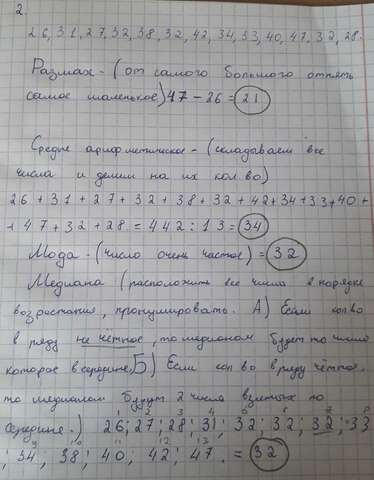 2.
26, 31, 27, 32, 38, 32, 42, 34, 33, 40, 47, 32, 28.
Размах - (от самого большого отнять
самое маленькое) 47 - 26 = 21
Средне арифметическое - (складываем все
числа и делим на их кол во)
26 + 31 + 27 + 32 + 38 + 32 + 42 + 34 + 33 + 40 +
+ 47 + 32 + 28 = 442 : 13 = 34
Мода - (число очень частое) = 32
Медиана (расположить все числа в порядке
возрастания, пронумеровать. А) Если кол во
в ряду не чётное, то медианой будет то число
которое в середине, Б) Если кол во в ряду чётное.
то медианой будут 2 числа взятых по
1 2 3 4 5 6 7 8
середине.) 26; 27; 28; 31; 32; 32; 32; 33
9 10 11 12 13
; 34; 38; 40; 42; 47. = 32